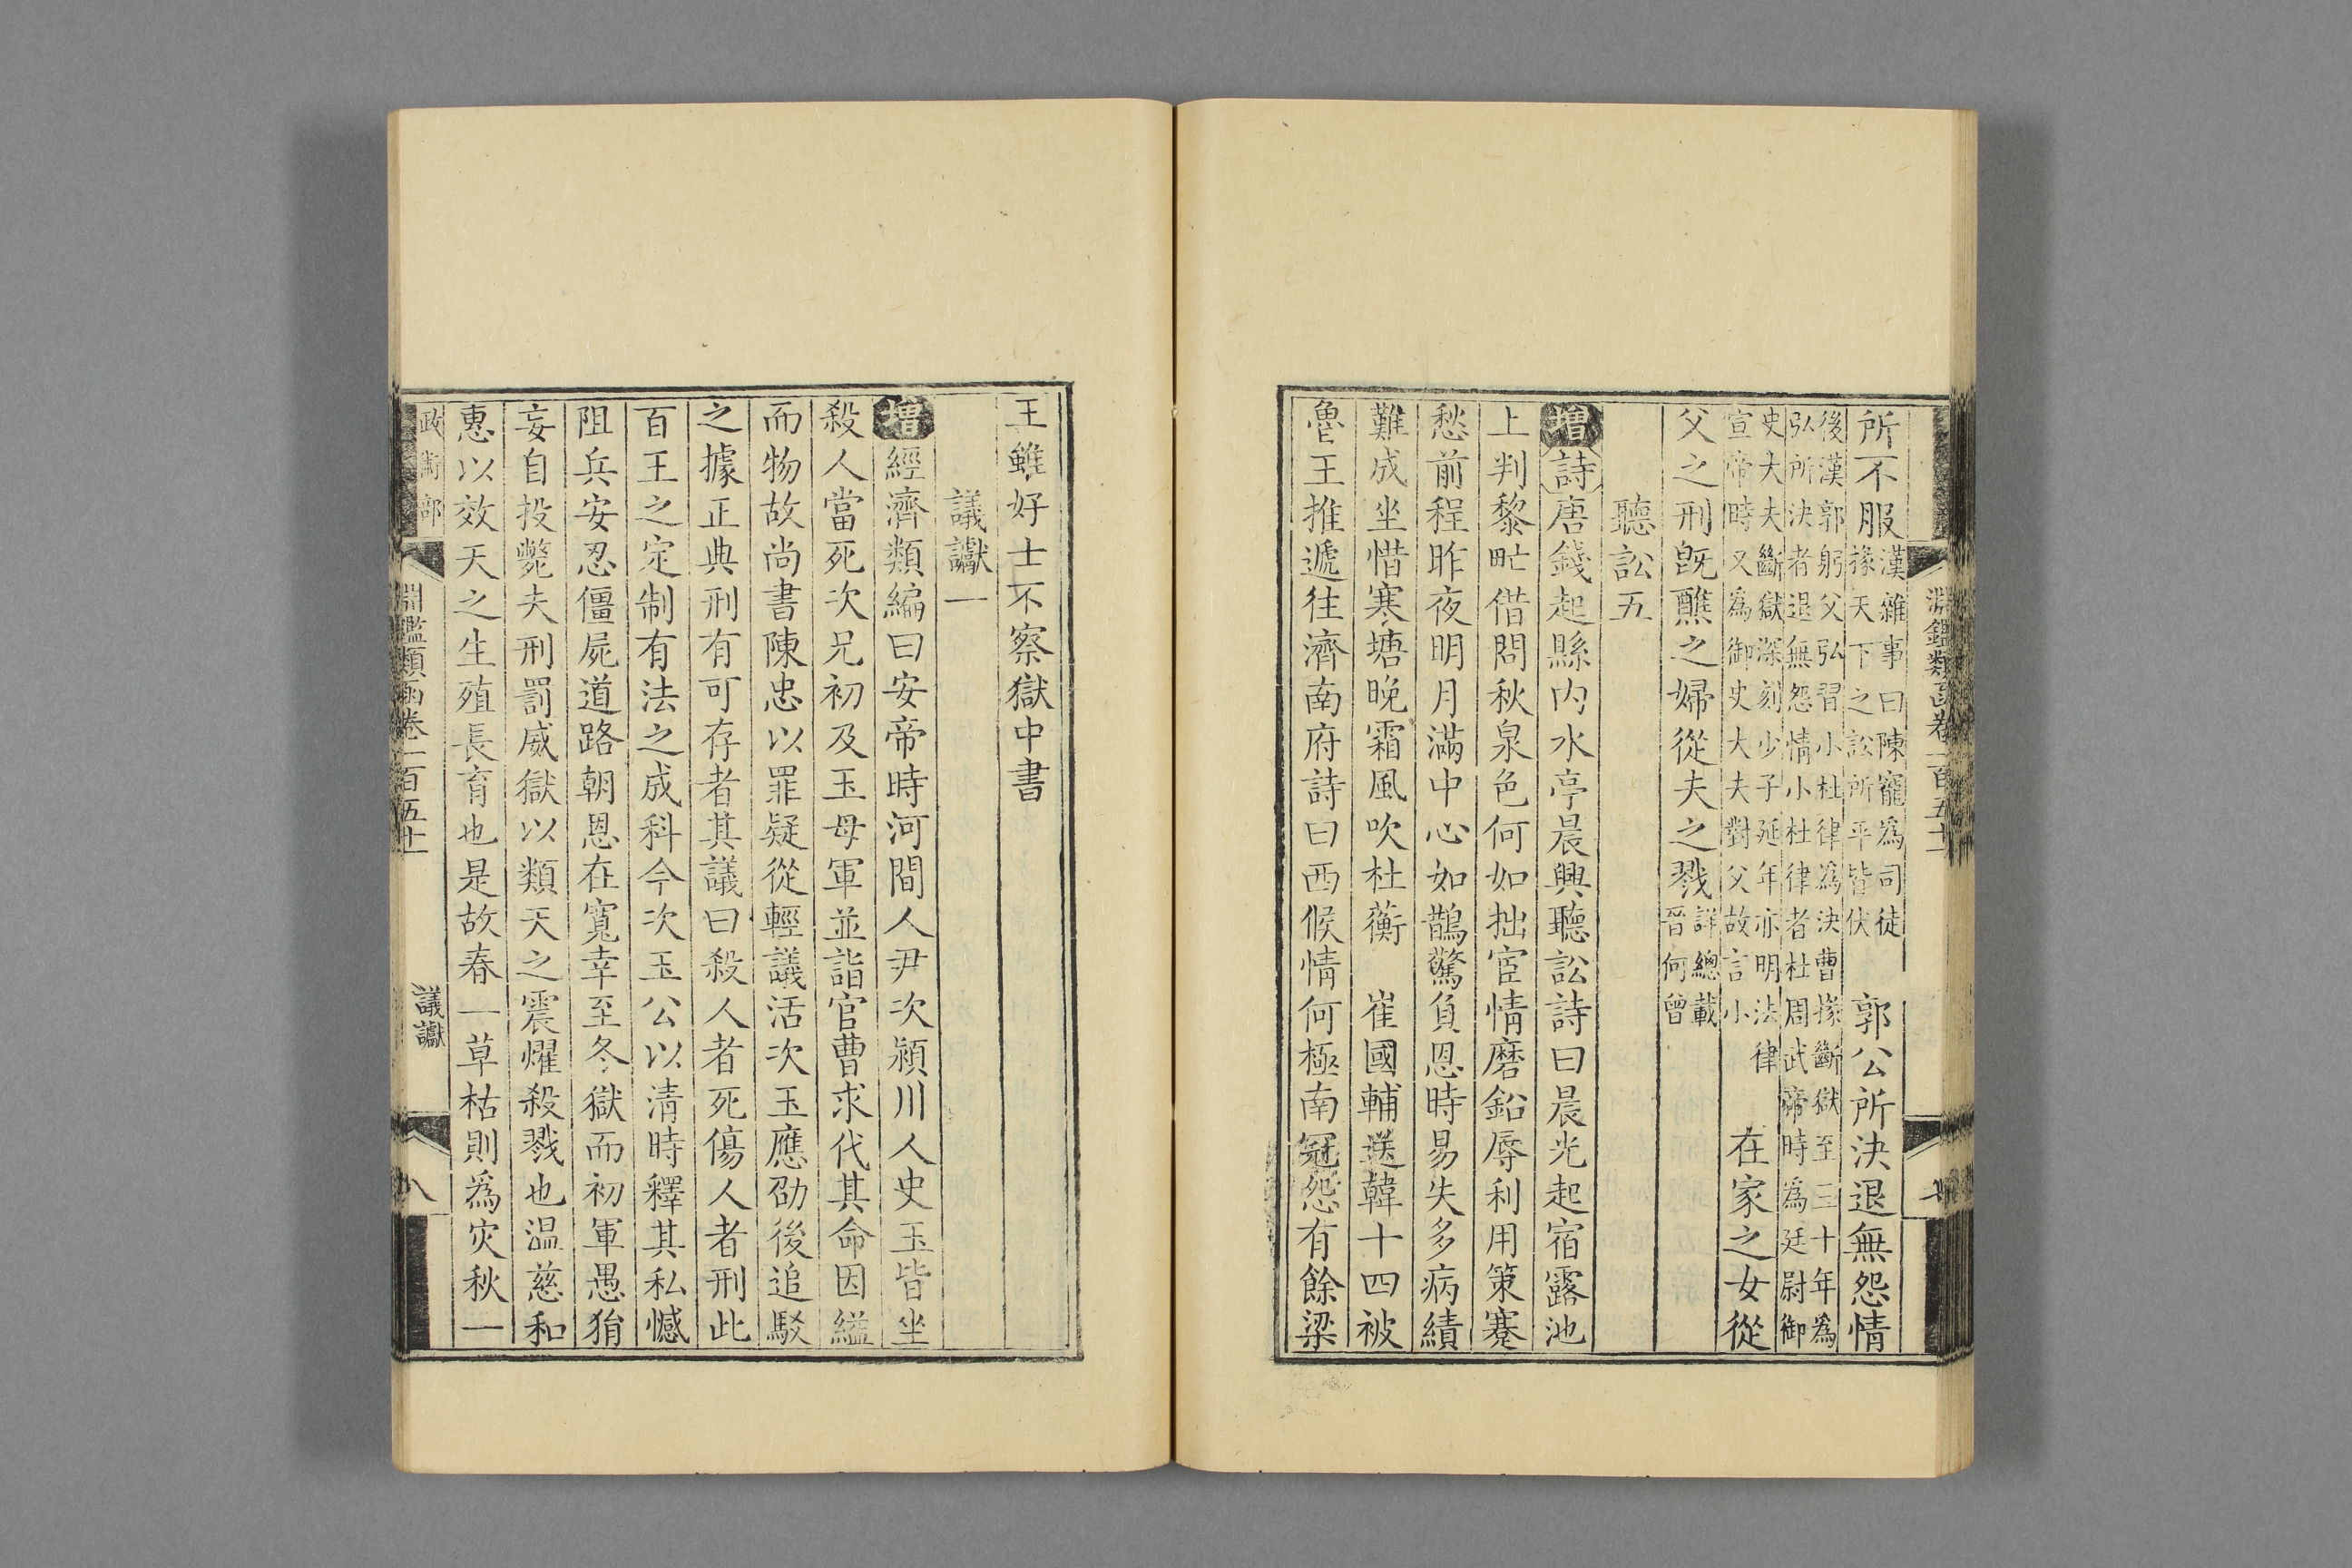 淵鑑類函卷一百五十
七
所不服漢雜事曰陳寵為司徒掾天下之訟所平皆伏郭公所決退無怨情
後漢郭躬父弘習小杜律為決曹掾斷獄至三十年為弘所決者退無怨情小杜律者杜周武帝時為廷尉御
史大夫斷獄深刻少子延年亦明法律宣帝時又為御史大夫對父故言小在家之女從
父之刑旣醮之婦從夫之戮詳總載晉何曾
聽訟五
增詩唐錢起縣內水亭晨興聽訟詩曰晨光起宿露池
上判黎甿借問秋泉色何如拙宦情磨鉛辱利用策蹇
愁前程昨夜明月滿中心如鵲驚負恩時易失多病績
難成坐惜寒塘晚霜風吹杜蘅 崔國輔送韓十四被
魯王推遞往濟南府詩曰西候情何極南冠怨有餘梁
王雖好士不察獄中書
議讞一
增經濟類編曰安帝時河間人尹次潁川人史玉皆坐
殺人當死次兄初及玉母軍並詣官曹求代其命因縊
而物故尚書陳忠以罪疑從輕議活次玉應劭後追駁
之據正典刑有可存者其議曰殺人者死傷人者刑此
百王之定制有法之成科今次玉公以清時釋其私憾
阻兵安忍僵屍道路朝恩在寬幸至冬獄而初軍愚狷
妄自投斃夫刑罰威獄以類天之震燿殺戮也溫慈和
惠以效天之生殖長育也是故春一草枯則為灾秋一
政術部
淵鑑類函卷一百五十
議讞
八